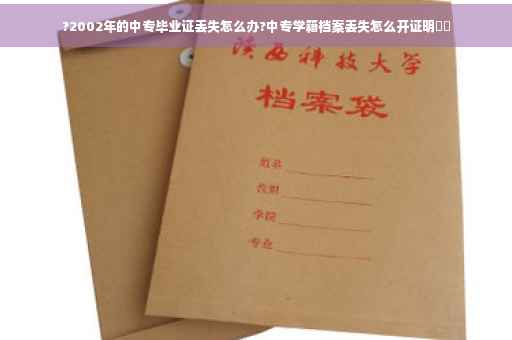 ?2002年的中专毕业证丢失怎么办?中专学籍档案丢失怎么开证明
陕西科技大学
档案袋
姓名
学院
专业